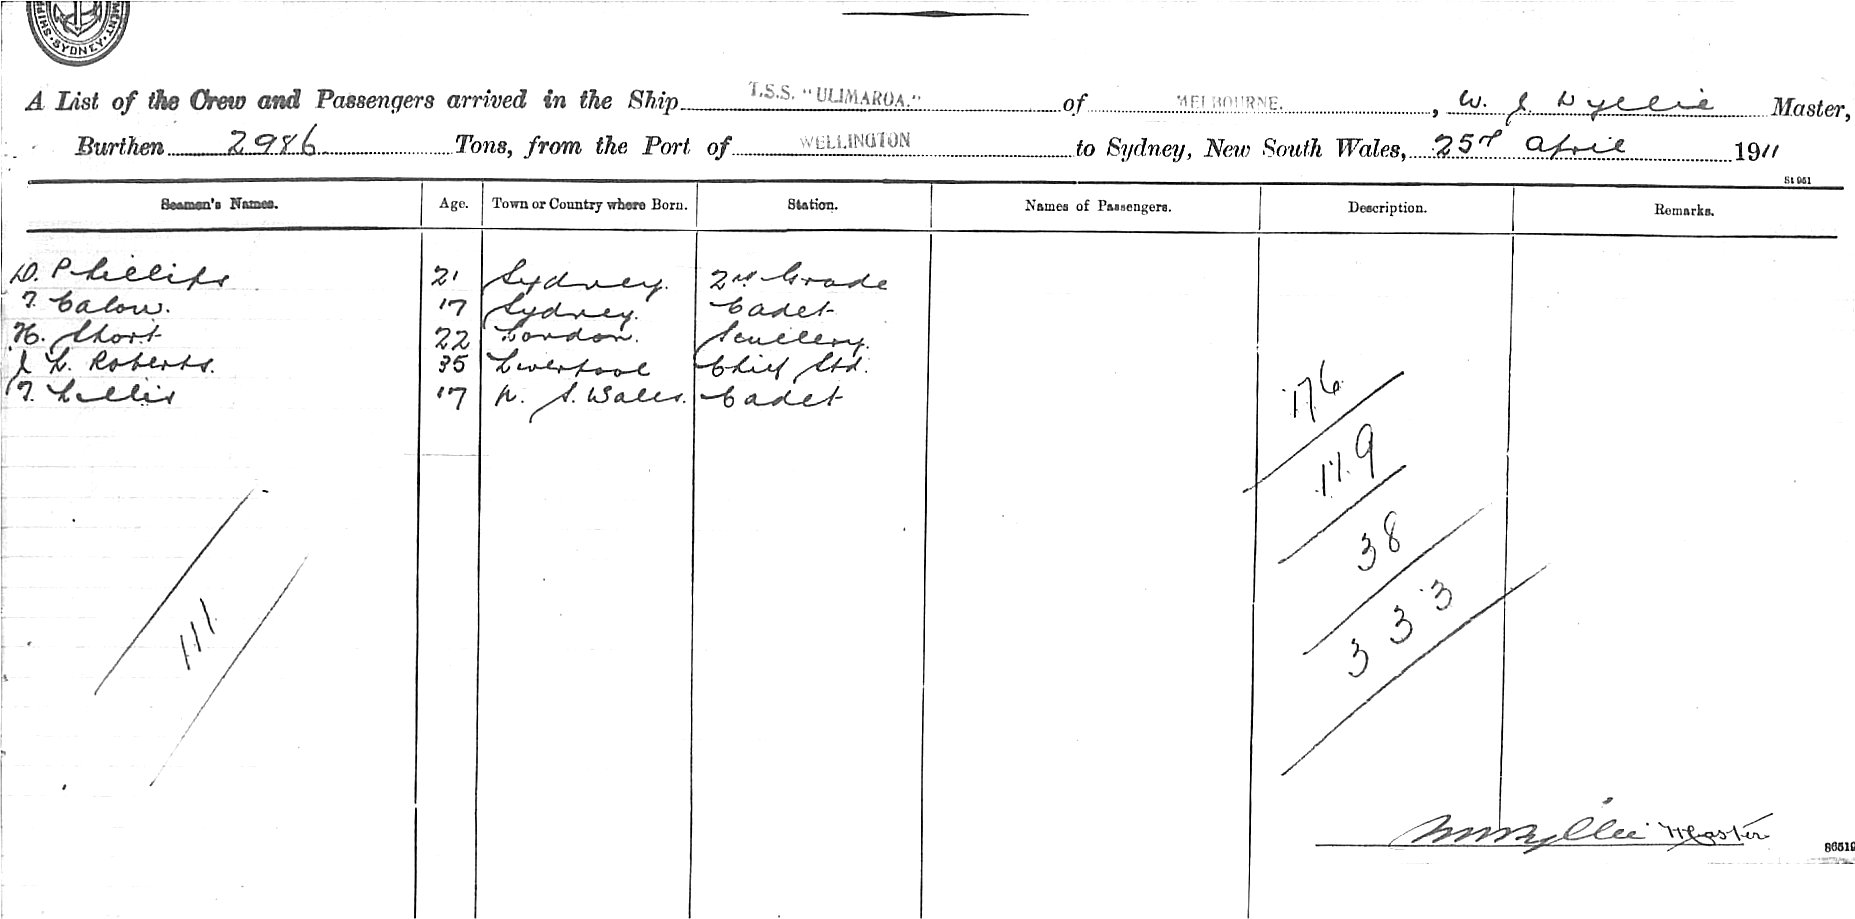 SYDNEY
A List of the Crew and Passengers arrived in the Ship T.S.S. "ULIMAROA." of MELBOURNE. , W. J. Wyllie Master,
Burthen 2986 Tons, from the Port of WELLINGTON to Sydney, New South Wales, 25 April 1911
St 961
Seamen's Names. Age. Town or Country where Born. Station. Names of Passengers. Description. Remarks.
D. Phillips 21 Sydney. 2nd Grade
T. Calow. 17 Sydney. Cadet
H. Short 22 London. Scullery.
J L. Roberts. 35 Liverpool Chief Std.
T. Lillis 17 N. S. Wales. Cadet
176
119
38
333
111
Wyllie Master
86519